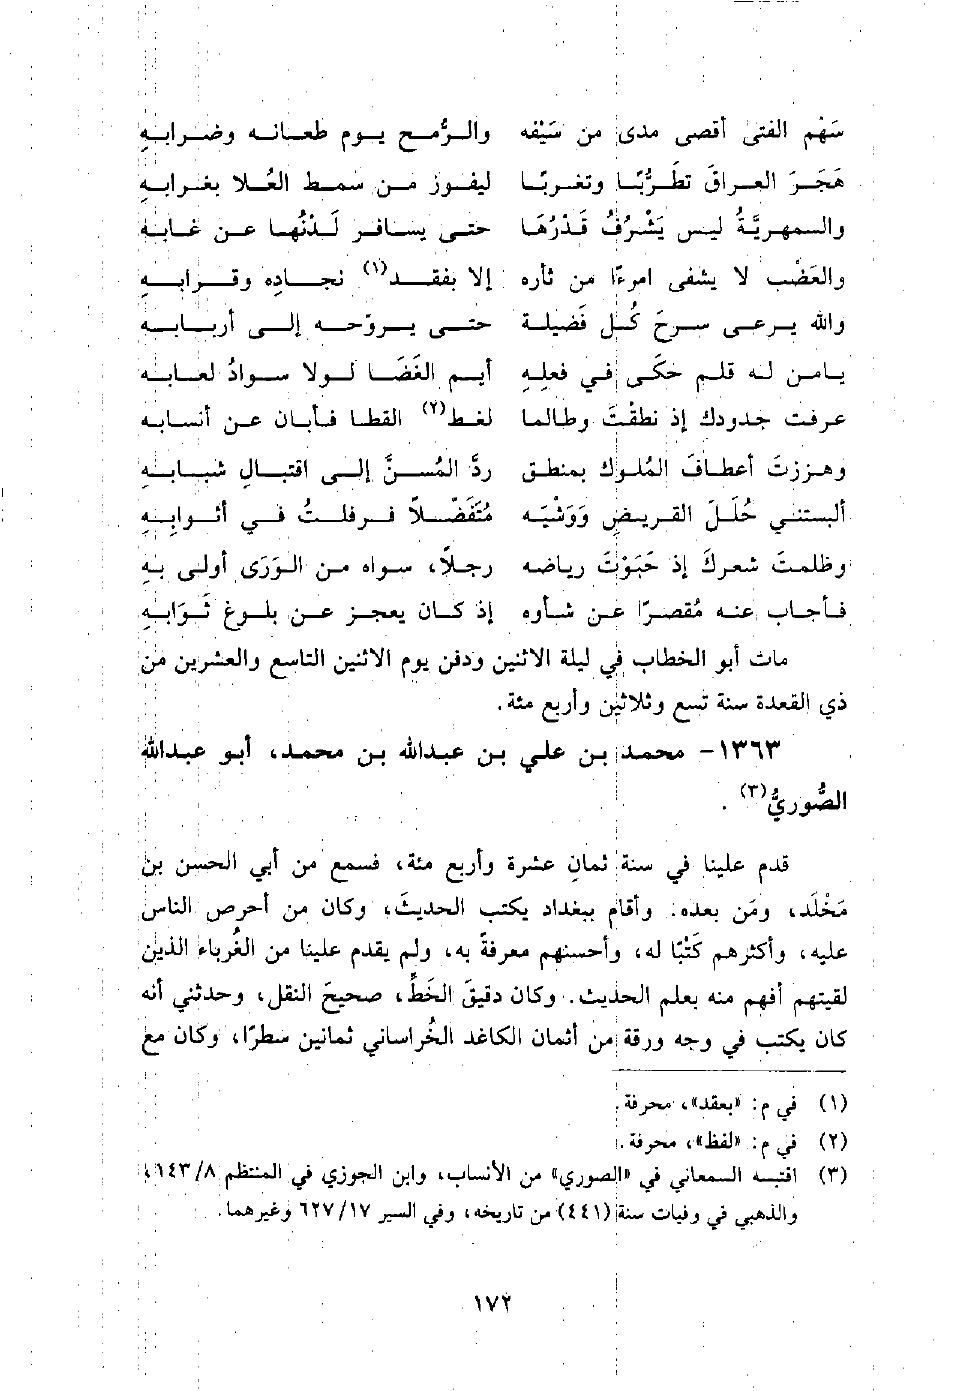 سَهْم الفتى أقصى مدى من سَيْفه والرُّمح يوم طعانه وضرابهِ
هَجَرَ العراقَ تطَرُّبًا وتغربًا ليفوز من سمط العُلا بغرابهِ
والسمهريَّةُ ليس يَشْرُفُ قَدْرُهَا حتى يسافر لَدْنُها عن غابهِ
والعَضْب لا يشفى امرءًا من ثأره إلا بفقد(١) نجاده وقرابهِ
والله يرعى سرحَ كُل فَضيلة حتى يروّحه إلى أربابهِ
يامن له قلم حكَى في فعلِهِ أيم الغَضَا لولا سوادُ لعابهِ
عرفت جدودك إذ نطقْتَ وطالما لغط(٢) القطا فأبان عن أنسابه
وهززتَ أعطافَ المُلوك بمنطق ردَّ المُسنَّ إلى اقتبال شبابه
ألبستني حُلَلَ القريض وَوَشْيَه مُتَفَضِّلاً فرفلتُ في أثوابهِ
وظلمتَ شعركَ إذ حَبَوْتَ رياضه رجلاً، سواه من الوَرَى أولى بهِ
فأجاب عنه مُقصرًا عن شأوه إذ كان يعجز عن بلوغ ثَوَابهِ
مات أبو الخطاب في ليلة الاثنين ودفن يوم الاثنين التاسع والعشرين من
ذي القعدة سنة تسع وثلاثين وأربع مئة.
١٣٦٣- محمد بن علي بن عبدالله بن محمد، أبو عبدالله
الصُّوريُّ(٣).
قدم علينا في سنة ثمانِ عشرة وأربع مئة، فسمع من أبي الحسن بن
مَخْلَد، ومَن بعده. وأقام ببغداد يكتب الحديثَ، وكان من أحرص الناس
عليه، وأكثرهم كَتْبًا له، وأحسنهم معرفةً به، ولم يقدم علينا من الغُرباء الذين
لقيتهم أفهم منه بعلم الحديث. وكان دقيقَ الخَطِّ، صحيحَ النقل، وحدثني أنه
كان يكتب في وجه ورقة من أثمان الكاغد الخُراساني ثمانين سطرًا، وكان مع
(١) في م: «بعقد»، محرفة.
(٢) في م: «لفظ»، محرفة.
(٣) اقتبسه السمعاني في «الصوري» من الأنساب، وابن الجوزي في المنتظم ٨/ ١٤٣،
والذهبي في وفيات سنة (٤٤١) من تاريخه، وفي السير ١٧/ ٦٢٧ وغيرهما.
١٧٢